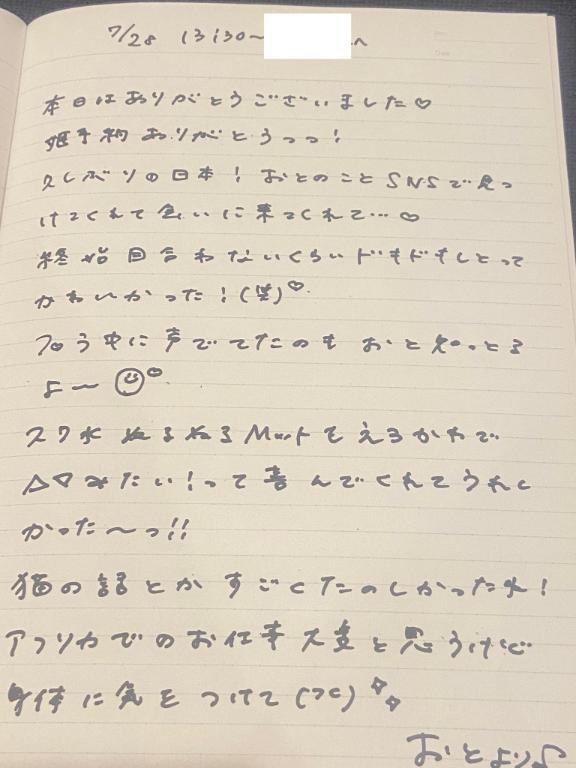 7/28 13:30〜 へ
本日はありがとうございました♡
姫予約ありがとうっっ!
久しぶりの日本! おとのことSNSで見つ
けてくれて会いに来てくれて…♡
終始目合わないくらいドキドキしとって
かわいかった!(笑)♡
フロ中に声でてたのも おと知っとる
よ〜☺♡
スク水 ぬるぬるMattもえろかわで
みたい!って喜んでくれてうれし
かった〜っ!!
猫の話とか すごくたのしかったね!
アフリカでのお仕事 大変と思うけど
身体に気をつけて
おとより♪